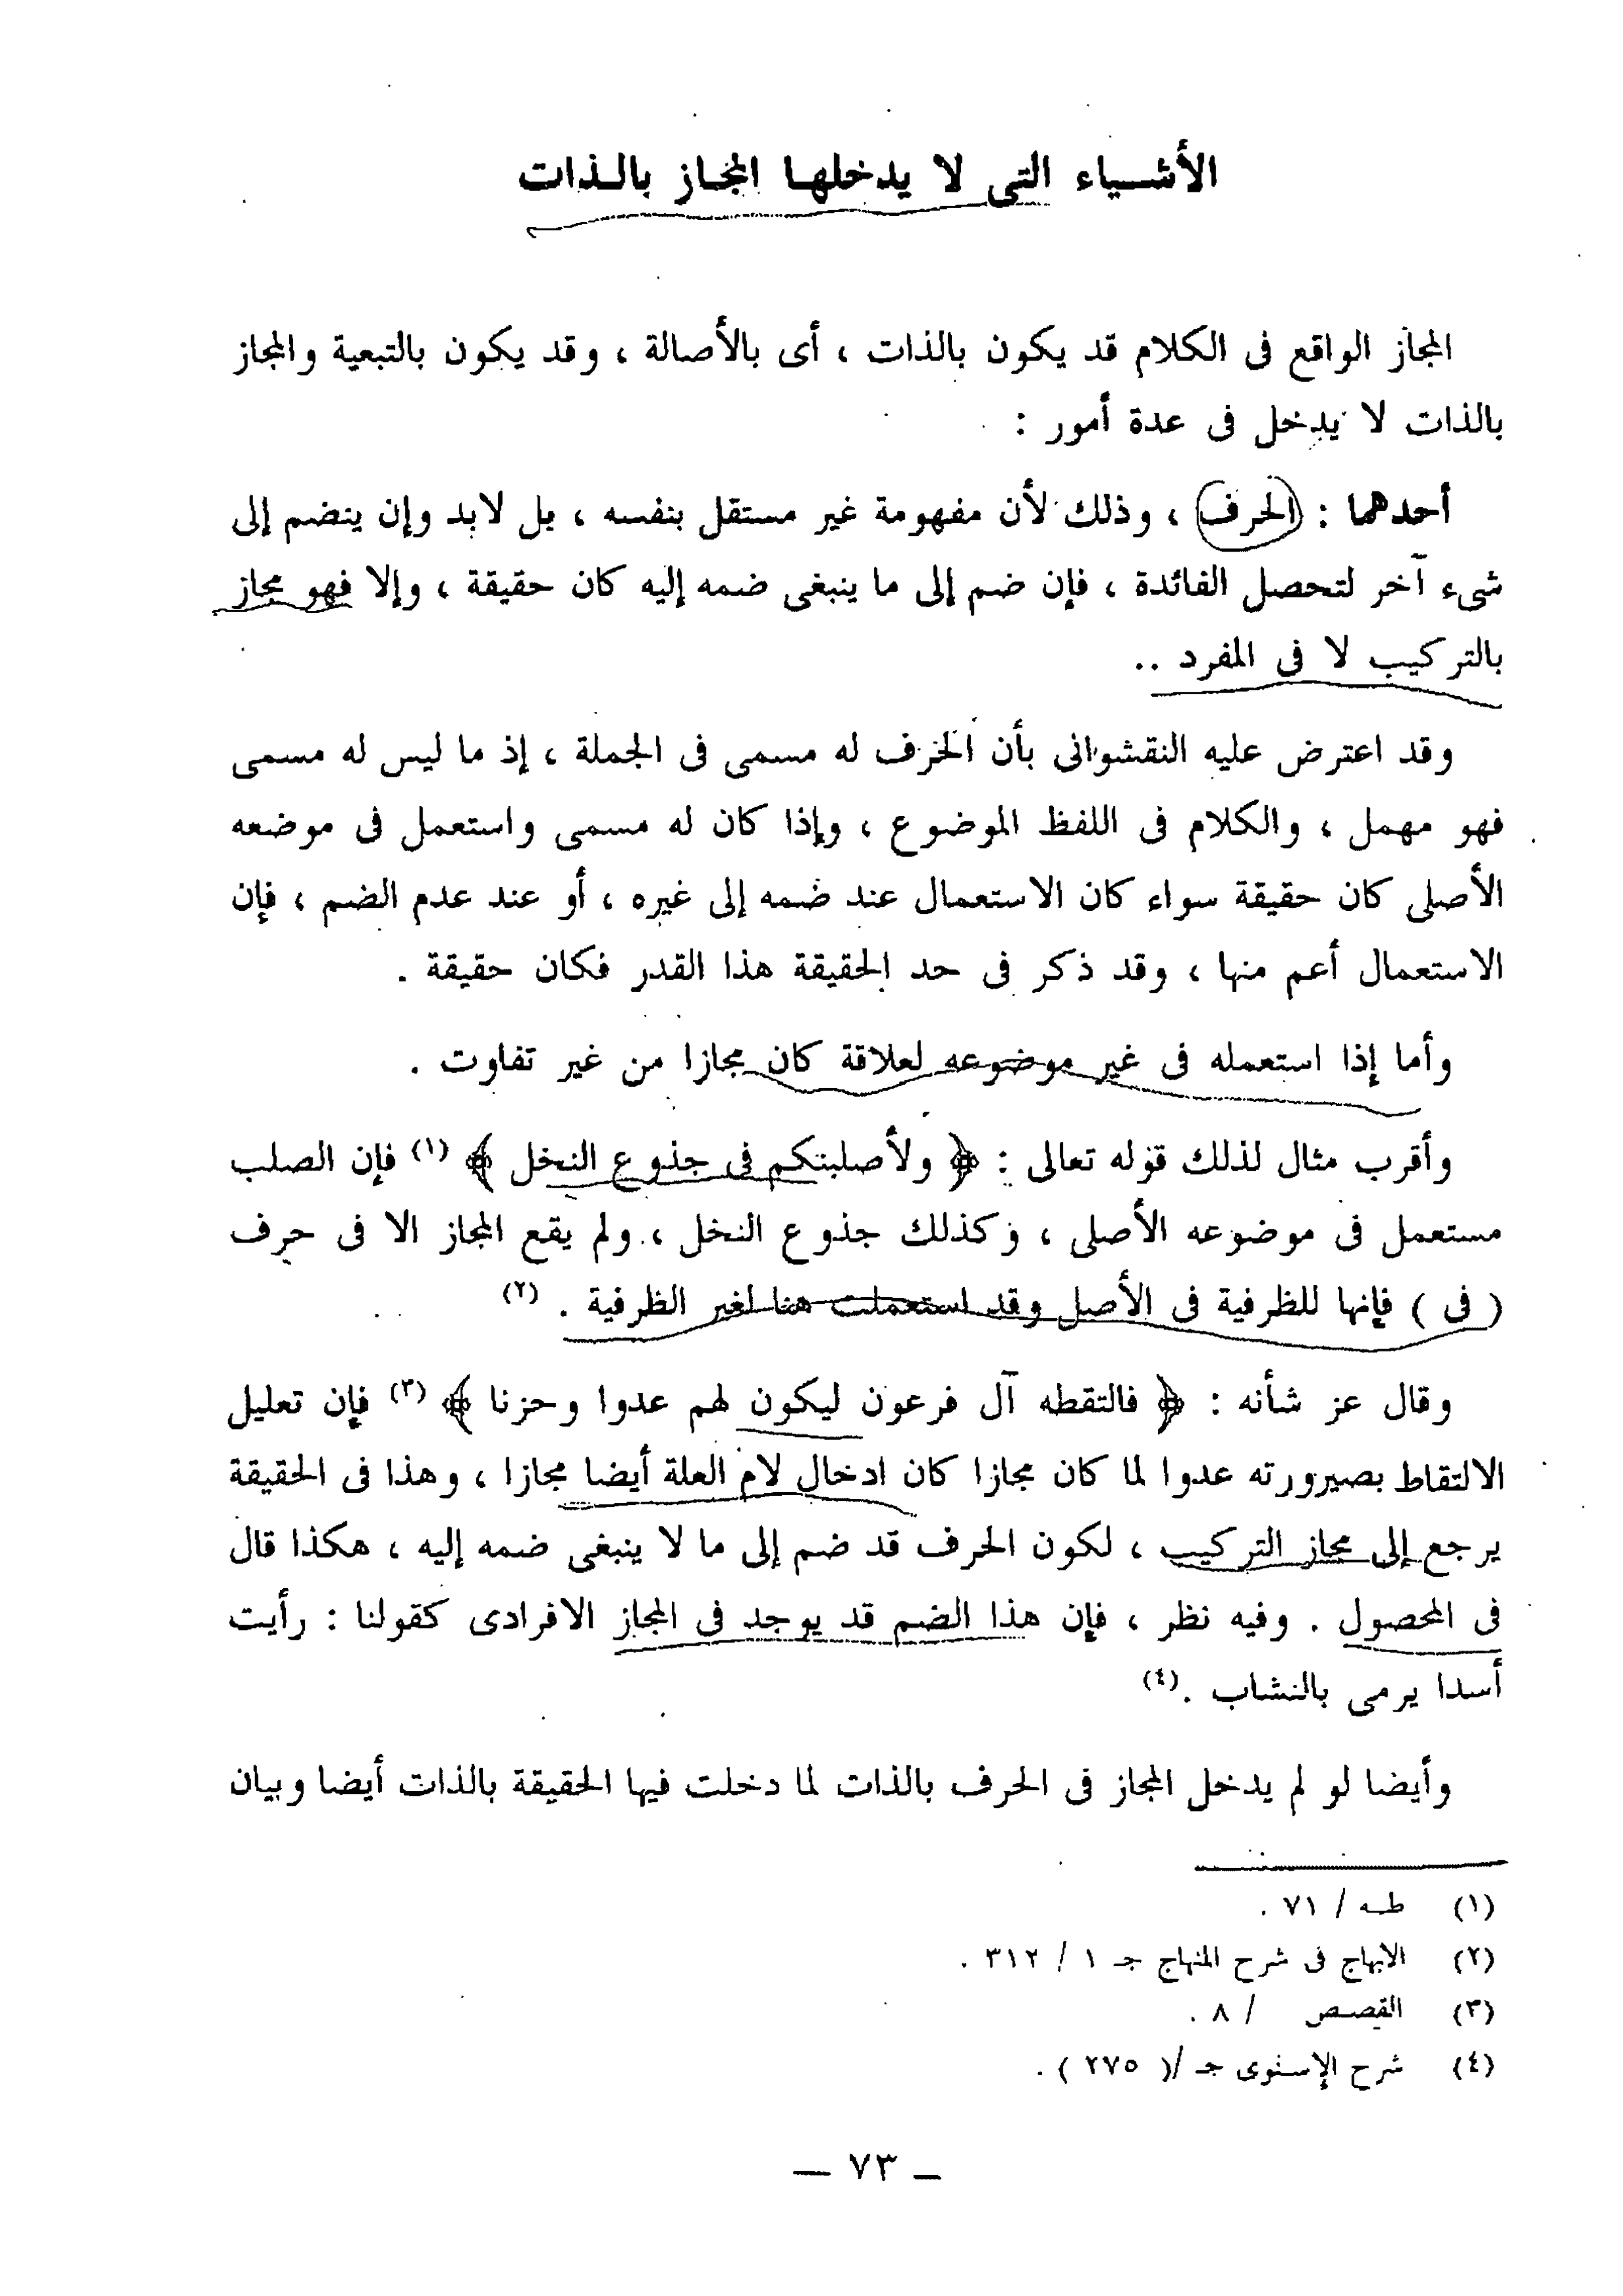 الأشياء التى لا يدخلها المجاز بالذات
المجاز الواقع فى الكلام قد يكون بالذات ، أى بالأصالة ، وقد يكون بالتبعية والمجاز
بالذات لا يدخل فى عدة أمور :
أحدهما : الحرف ، وذلك لأن مفهومة غير مستقل بنفسه ، بل لابد وإن ينضم إلى
شىء آخر لتحصل الفائدة ، فإن ضم إلى ما ينبغى ضمه إليه كان حقيقة ، وإلا فهو مجاز
بالتركيب لا فى المفرد ..
وقد اعترض عليه النقشوانى بأن الحرف له مسمى فى الجملة ، إذ ما ليس له مسمى
فهو مهمل ، والكلام فى اللفظ الموضوع ، وإذا كان له مسمى واستعمل فى موضعه
الأصلى كان حقيقة سواء كان الاستعمال عند ضمه إلى غيره ، أو عند عدم الضم ، فإن
الاستعمال أعم منها ، وقد ذكر فى حد الحقيقة هذا القدر فكان حقيقة .
وأما إذا استعمله فى غير موضوعه لعلاقة كان مجازا من غير تفاوت .
وأقرب مثال لذلك قوله تعالى : ﴿ ولأصلبنكم فى جذوع النخل ﴾ (١) فإن الصلب
مستعمل فى موضوعه الأصلى ، وكذلك جذوع النخل ، ولم يقع المجاز الا فى حرف
( فى ) فإنها للظرفية فى الأصل وقد استعملت هنا لغير الظرفية . (٢)
وقال عز شأنه : ﴿ فالتقطه آل فرعون ليكون لهم عدوا وحزنا ﴾ (٣) فإن تعليل
الالتقاط بصيرورته عدوا لما كان مجازا كان ادخال لام العلة أيضا مجازا ، وهذا فى الحقيقة
يرجع إلى مجاز التركيب ، لكون الحرف قد ضم إلى ما لا ينبغى ضمه إليه ، هكذا قال
فى المحصول . وفيه نظر ، فإن هذا الضم قد يوجد فى المجاز الافرادى كقولنا : رأيت
أسدا يرمى بالنشاب .(٤)
وأيضا لو لم يدخل المجاز فى الحرف بالذات لما دخلت فيها الحقيقة بالذات أيضا وبيان
(١) طه / ٧١ .
(٢) الابهاج فى شرح المنهاج جـ ١ / ٣١٢ .
(٣) القصص / ٨ .
(٤) شرح الإسنوى جـ /( ٢٧٥ ) .
— ٧٣ —